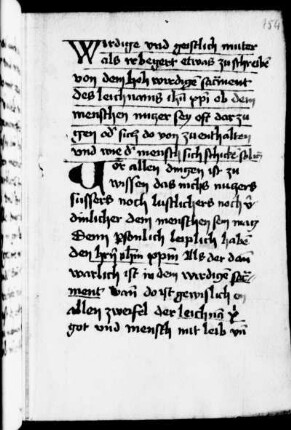 154
Wirdige vnd geistlich muter
als ir begert etwas zu schreibē
von dem hoh wirdigē sacmēnt
des leichnams ihū xpi ob dem
menschen nuczer sey oft dar zu
gen od' sich do von zu enthalten
vnd wie d' mensch sich schicken
Vor allen dingen ist zu
wissen das nichs nuczers
süssers noch lustlichers noch
dinlicher dem menschen sey mag
Denn psönlich leiplich habē
den hrn ihm xpm Als der dan
warlich ist in dem wirdigē sac
ment wan do ist gewislich on
allen zweifel der leichnā
got vnd mensch mit leib vn̄